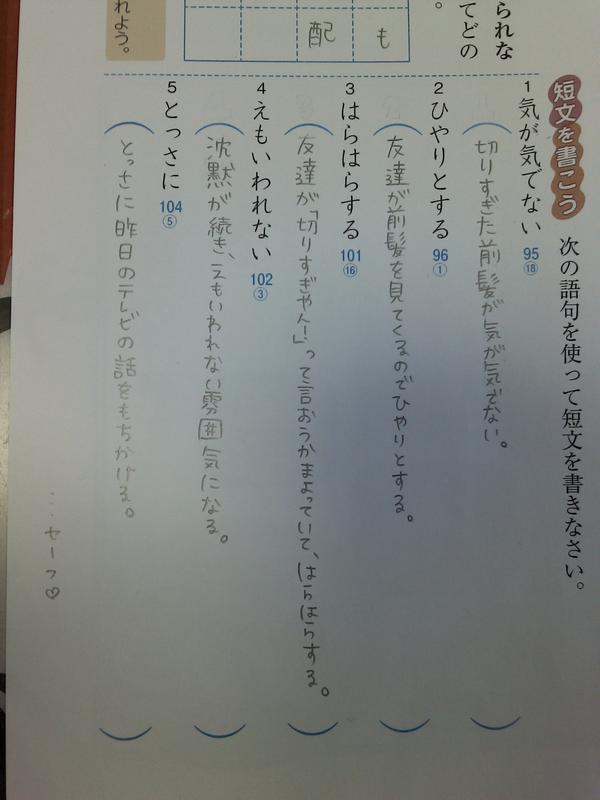 られな
てどの
。
も
配
れよう。
短文を書こう
次の語句を使って短文を書きなさい。
1 気が気でない 95 ⑱
切りすぎた前髪が気が気でない。
2 ひやりとする 96 ①
友達が前髪を見てくるのでひやりとする。
3 はらはらする 101 ⑯
友達が「切りすぎやん!」って言おうかまよっていて、はらはらする。
4 えもいわれない 102 ③
沈黙が続き、えもいわれない雰囲気になる。
5 とっさに 104 ⑤
とっさに昨日のテレビの話をもちかける。
…セーフ♡